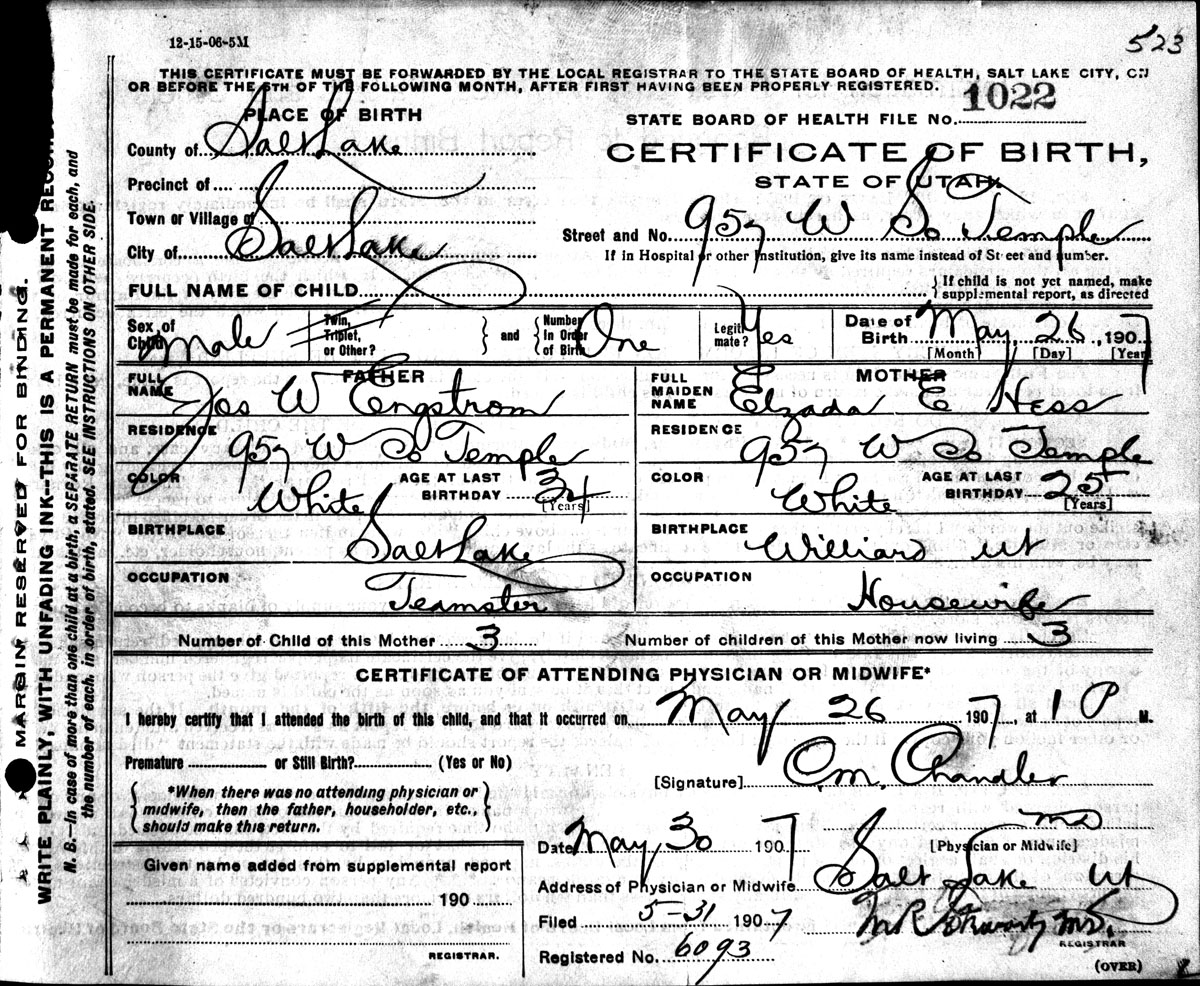 12-15-06-5M
523
THIS CERTIFICATE MUST BE FORWARDED BY THE LOCAL REGISTRAR TO THE STATE BOARD OF HEALTH, SALT LAKE CITY, ON
OR BEFORE THE 5TH OF THE FOLLOWING MONTH, AFTER FIRST HAVING BEEN PROPERLY REGISTERED.
PLACE OF BIRTH
STATE BOARD OF HEALTH FILE No. 1022
County of Salt Lake
CERTIFICATE OF BIRTH,
STATE OF UTAH.
Precinct of
Town or Village of
Street and No. 957 W So Temple
City of Salt Lake
If in Hospital or other Institution, give its name instead of Street and number.
FULL NAME OF CHILD
If child is not yet named, make
supplemental report, as directed
Sex of Child Male
Twin, Triplet, or Other?
and
Number in Order of Birth One
Legitimate? Yes
Date of Birth May 26, 1907
[Month] [Day] [Year]
FATHER
FULL NAME Jos W Engstrom
MOTHER
FULL MAIDEN NAME Elzada E Hess
RESIDENCE 957 W So Temple
RESIDENCE 957 W So Temple
COLOR White
AGE AT LAST BIRTHDAY 34 [Years]
COLOR White
AGE AT LAST BIRTHDAY 25 [Years]
BIRTHPLACE Salt Lake
BIRTHPLACE Williard Ut
OCCUPATION Teamster
OCCUPATION Housewife
Number of Child of this Mother 3
Number of children of this Mother now living 3
CERTIFICATE OF ATTENDING PHYSICIAN OR MIDWIFE*
I hereby certify that I attended the birth of this child, and that it occurred on May 26 1907, at 1 P M.
Premature or Still Birth? (Yes or No)
[Signature] C.M. Chandler
*When there was no attending physician or
midwife, then the father, householder, etc.,
should make this return.
MD
Date May 30 1907
[Physician or Midwife]
Given name added from supplemental report
190
REGISTRAR.
Address of Physician or Midwife Salt Lake Ut
Filed 5-31 1907
M.D.
REGISTRAR
Registered No. 6093
(OVER)
MARGIN RESERVED FOR BINDING.
WRITE PLAINLY, WITH UNFADING INK—THIS IS A PERMANENT RECORD
N. B.—In case of more than one child at a birth, a SEPARATE RETURN must be made for each, and
the number of each, in order of birth, stated. SEE INSTRUCTIONS ON OTHER SIDE.